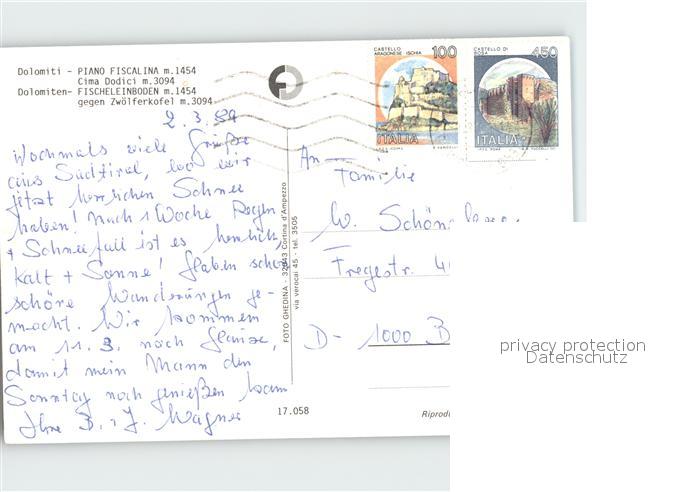 Dolomiti - PIANO FISCALINA m.1454
Cima Dodici m.3094
Dolomiten- FISCHLEINBODEN m.1454
gegen Zwölferkofel m.3094
CASTELLO
ARAGONESE ISCHIA
100
ITALIA
CASTELLO DI
ROSA
450
ITALIA
2.3.89
Nochmals viele Grüße
aus Südtirol, wo wir
jetzt herrlichen Schnee
haben! Nach 1 Woche Regen
+ Schneefall ist es herrlich,
kalt + Sonne! Haben schon
schöne Wanderungen ge-
macht. Wir kommen
am 11.3. nach Hause,
damit mein Mann den
Sonntag noch genießen kann
Ihre B. + J. Wagner
An
Familie
W. Schön
Fregestr. 4
D- 1000 B
FOTO GHEDINA - 32043 Cortina d'Ampezzo
via verocai 45 - tel. 3505
17.058
Riprodu
privacy protection
Datenschutz